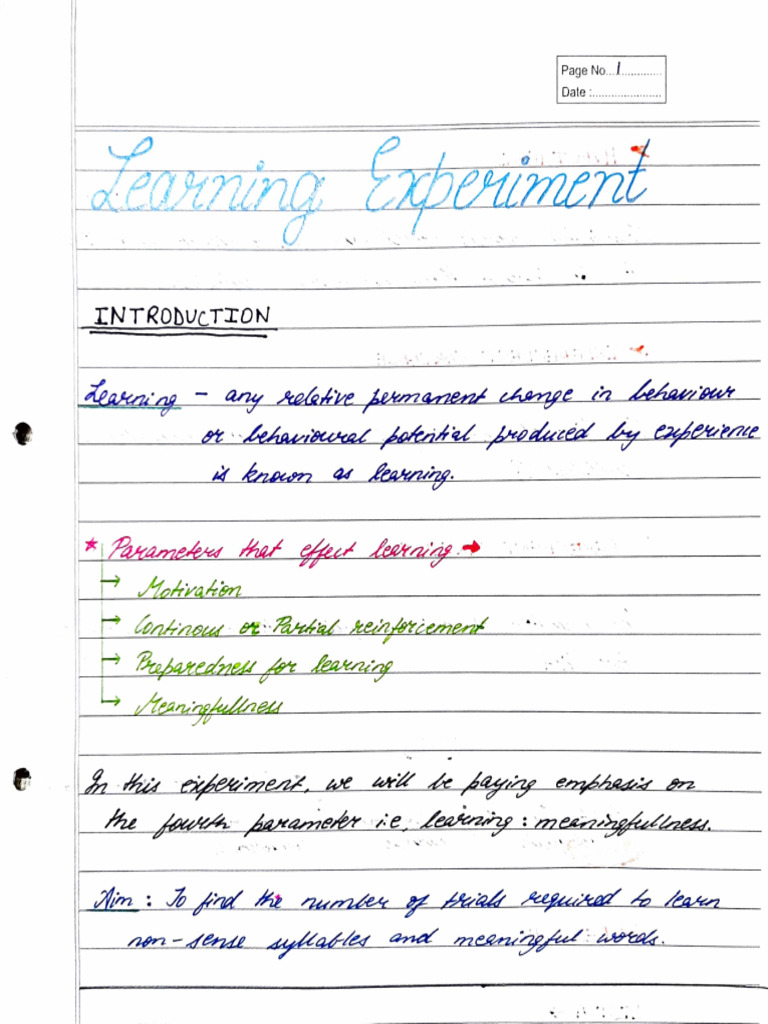 Page No. 1
Date :
Learning Experiment
INTRODUCTION
Learning - any relative permanent change in behaviour
or behavioural potential produced by experience
is known as learning.
* Parameters that effect learning →
→ Motivation
→ Continous or Partial reinforcement
→ Preparedness for learning
→ Meaningfullness
In this experiment, we will be paying emphasis on
the fourth parameter i.e, learning : meaningfullness.
Aim : To find the number of trials required to learn
non-sense syllables and meaningful words.